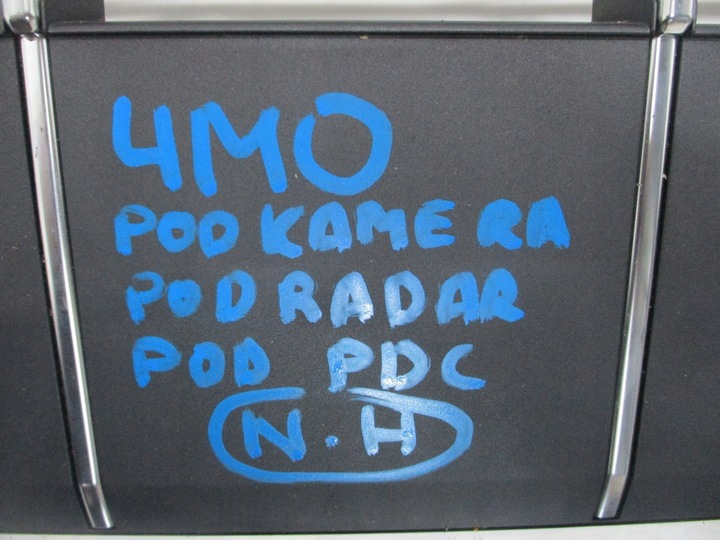 4M0
POD KAMERA
POD RADAR
POD PDC
N.H